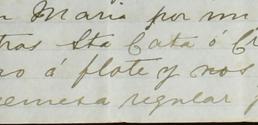 Maria por mi
tras Sta Cata ó C
o á flote y nos
remesa regular